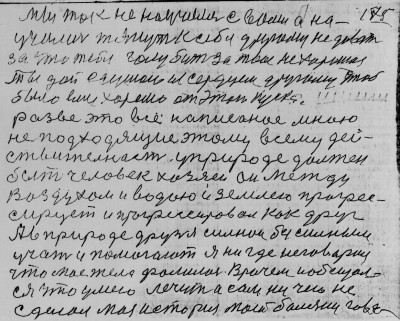 мы так не научились с Вами а на- 175
учились тянуть к себе другому не давать
за что тебя голубит за твое не хорошее
Ты дай с душою и сердцем другому чтоб
было ему хорошо от этого куска.
разве это всё написаное мною
не подходящие этому всему дей-
ствительность. у природе должен
быть человек хозяен он между
Воздухом и водою и землею прогрес-
сирует и прогрессировал как друг
А в природе друзья сильной бессильным
учат и помогают я нигде не говорил
что моя тела больная. Врачем и обещал-
ся что умею лечить а сам ни чего не
сделал моя история моей болезни гово-